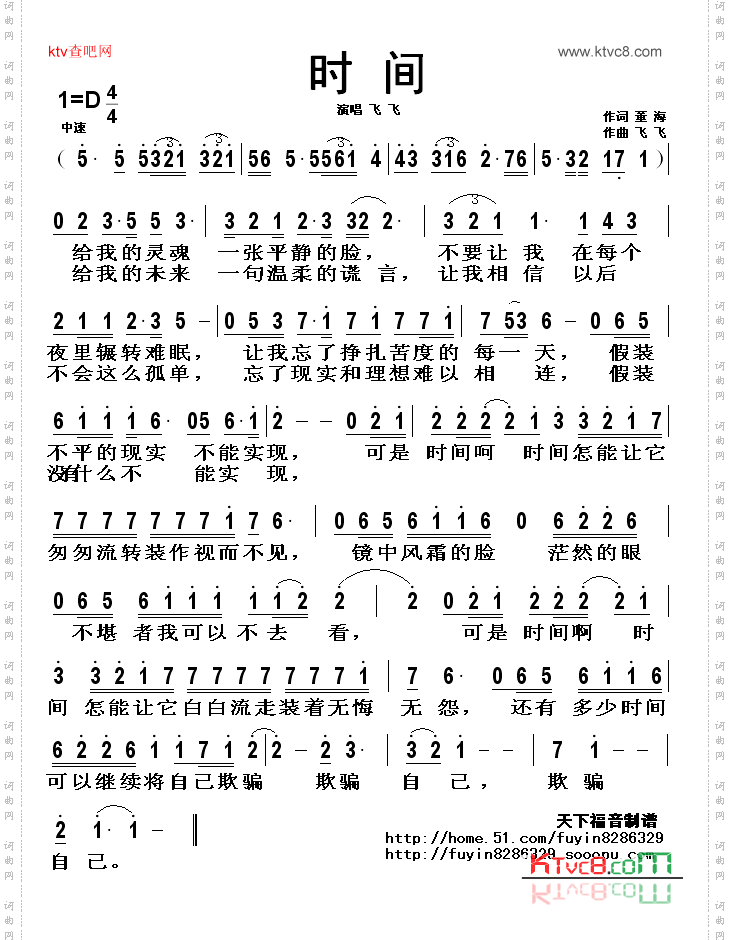 ktv查吧网
www.ktvc8.com
时间
1=D 4/4
演唱 飞飞
作词 董海
中速
作曲 飞飞
( 5· 5 5321 321 | 56 5·5561 4 | 43 316 2·76 | 5·32 17 1 )
0 2 3·5 5 3· | 3 2 1 2·3 32 2· | 3 2 1 1· 1 4 3
给我的灵魂 一张平静的脸, 不要让 我 在每个
给我的未来 一句温柔的谎 言, 让我相 信 以后
2 1 1 2·3 5 – | 0 5 3 7·1 7 1 7 7 1 | 7 53 6 – 0 6 5
夜里辗转难眠, 让我忘了挣扎苦度的 每一 天, 假装
不会这么孤单, 忘了现实和理想难以 相 连, 假装
6 1 1 1 6· 05 6·1 | 2 – – 0 2 1 | 2 2 2 2 2 1 3 3 2 1 7
不平的现实 不能实现, 可是 时间呵 时间怎能让它
没有什么不 能实 现,
7 7 7 7 7 7 7 1 7 6· | 0 6 5 6 1 1 6 0 6 2 2 6
匆匆流转装作视而不见, 镜中风霜的脸 茫然的眼
0 6 5 6 1 1 1 1 2 2 | 2 0 2 1 2 2 2 2 1
不堪 者我可以 不 去 看, 可是 时间啊 时
3 3 3 2 1 7 7 7 7 7 7 7 1 | 7 6· 0 6 5 6 1 1 6
间 怎能让它白白流走装着无悔 无 怨, 还有 多少时间
6 2 2 6 1 1 7 1 2 | 2 – 2 3· | 3 2 1 – – | 7 1 – –
可以继续将自己欺骗 欺骗 自 己, 欺 骗
2 1· 1· –
自 己。
天下福音制谱
http://home.51.com/fuyin8286329
http://fuyin8286329.sooopu.com
KTvc8.com
词曲网